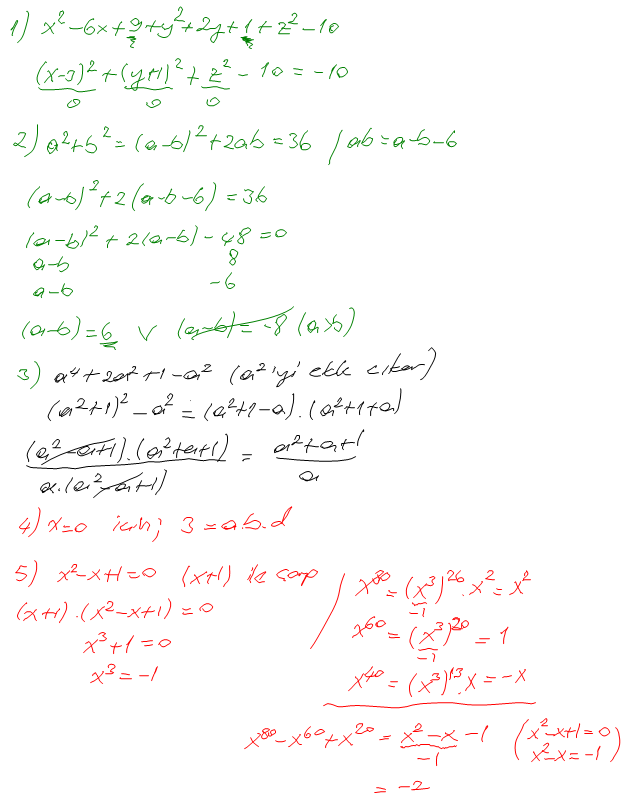 1) x² - 6x + 9 + y² + 2y + 1 + z² - 10
(x-3)² + (y+1)² + z² - 10 = -10
0 0 0
2) a² + b² = (a-b)² + 2ab = 36 / ab = a-b-6
(a-b)² + 2(a-b-6) = 36
(a-b)² + 2(a-b) - 48 = 0
a-b 8
a-b -6
(a-b) = 6 ∨ (a-b) = -8 (a>b)
3) a⁴ + 2a² + 1 - a² (a²'yi ekle çıkar)
(a²+1)² - a² = (a²+1-a).(a²+1+a)
(a²-a+1).(a²+a+1) / a.(a²-a+1) = a²+a+1 / a
4) x=0 için; 3 = a.b.d
5) x²-x+1=0 (x+1) ile çarp
(x+1).(x²-x+1) = 0
x³+1 = 0
x³ = -1
x⁸⁰ = (x³)²⁶.x² = x²
-1
x⁶⁰ = (x³)²⁰ = 1
-1
x⁴⁰ = (x³)¹³.x = -x
x⁸⁰ - x⁶⁰ + x²⁰ = x² - x - 1 (x²-x+1=0
-1 x²-x=-1)
= -2